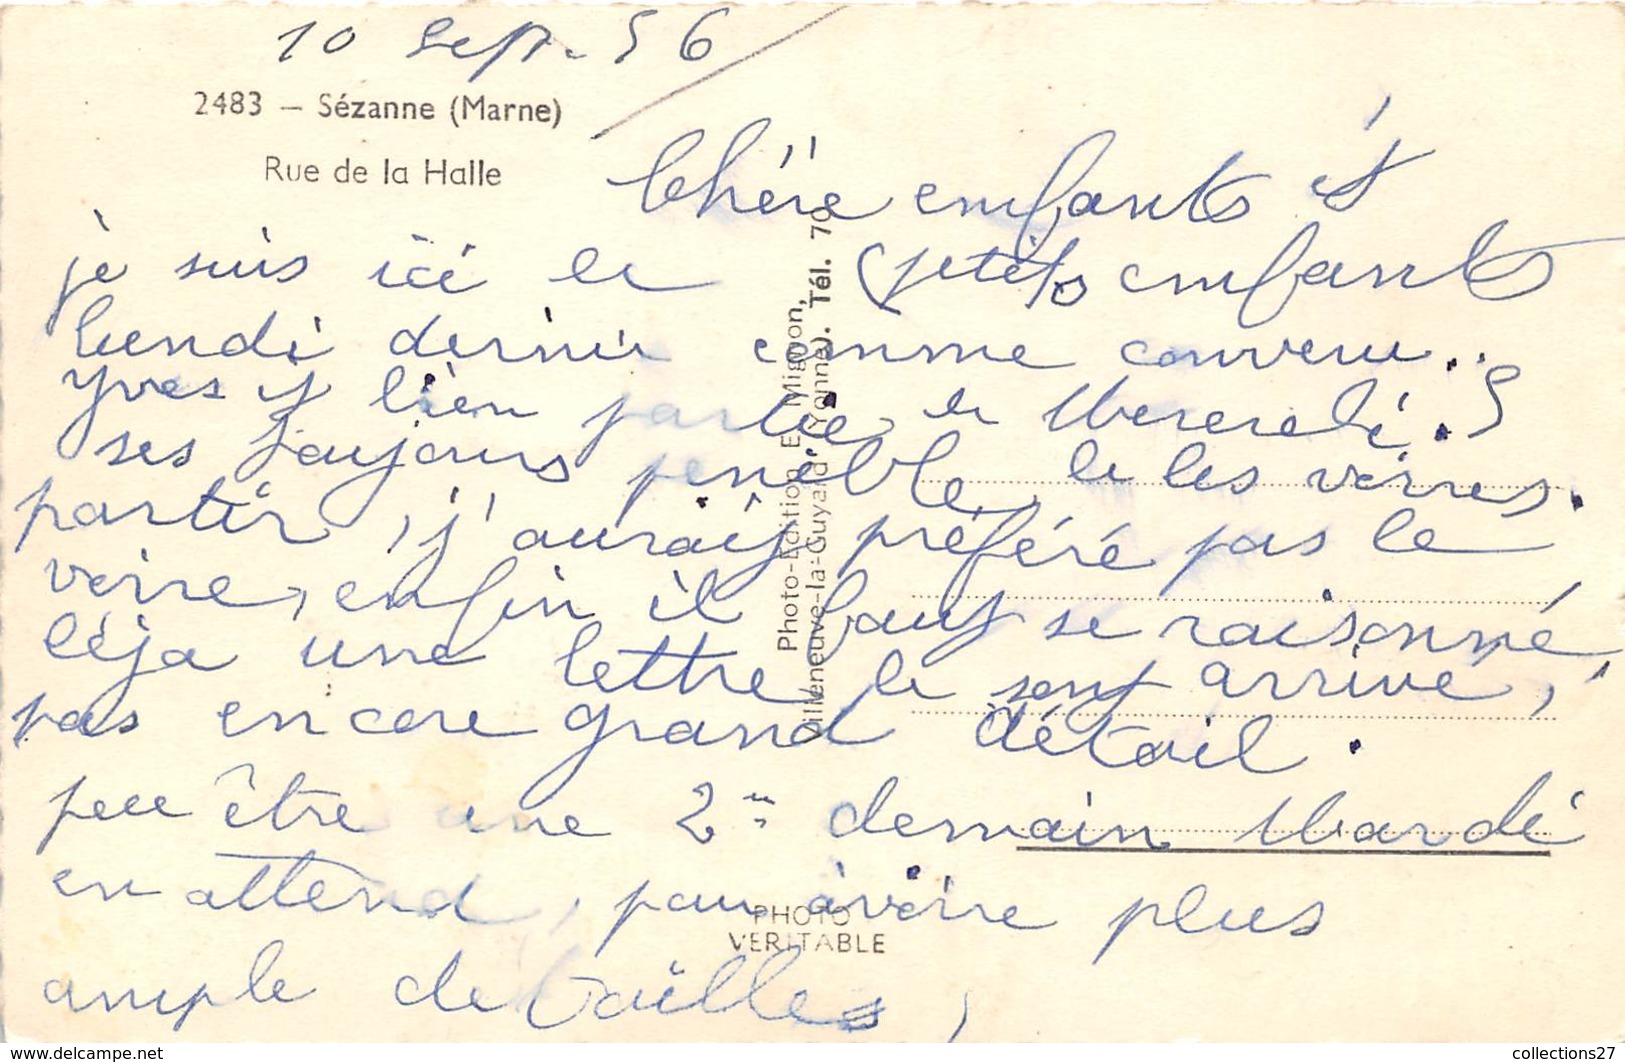 10 Sept. 56
2483 — Sézanne (Marne)
Rue de la Halle
Chére enfants et
petits enfants
je suis ici le
lundi dernié comme convenu..
Yves et bien partie le Mercredi. 5
ses toujours penible, de les voires.
partir, j'aurais préféré pas le
voire, enfin il faut se raisonné,
déja une lettre le sont arrivé,
pas encore grand détail.
peu être une 2me demain Mardi
en attend, pour avoire plus
ample detailles,
Photo-Edition E. Mignon,
Villeneuve-la-Guyard (Yonne). Tél. 70
PHOTO
VERITABLE
https://www.delcampe.net
collections27